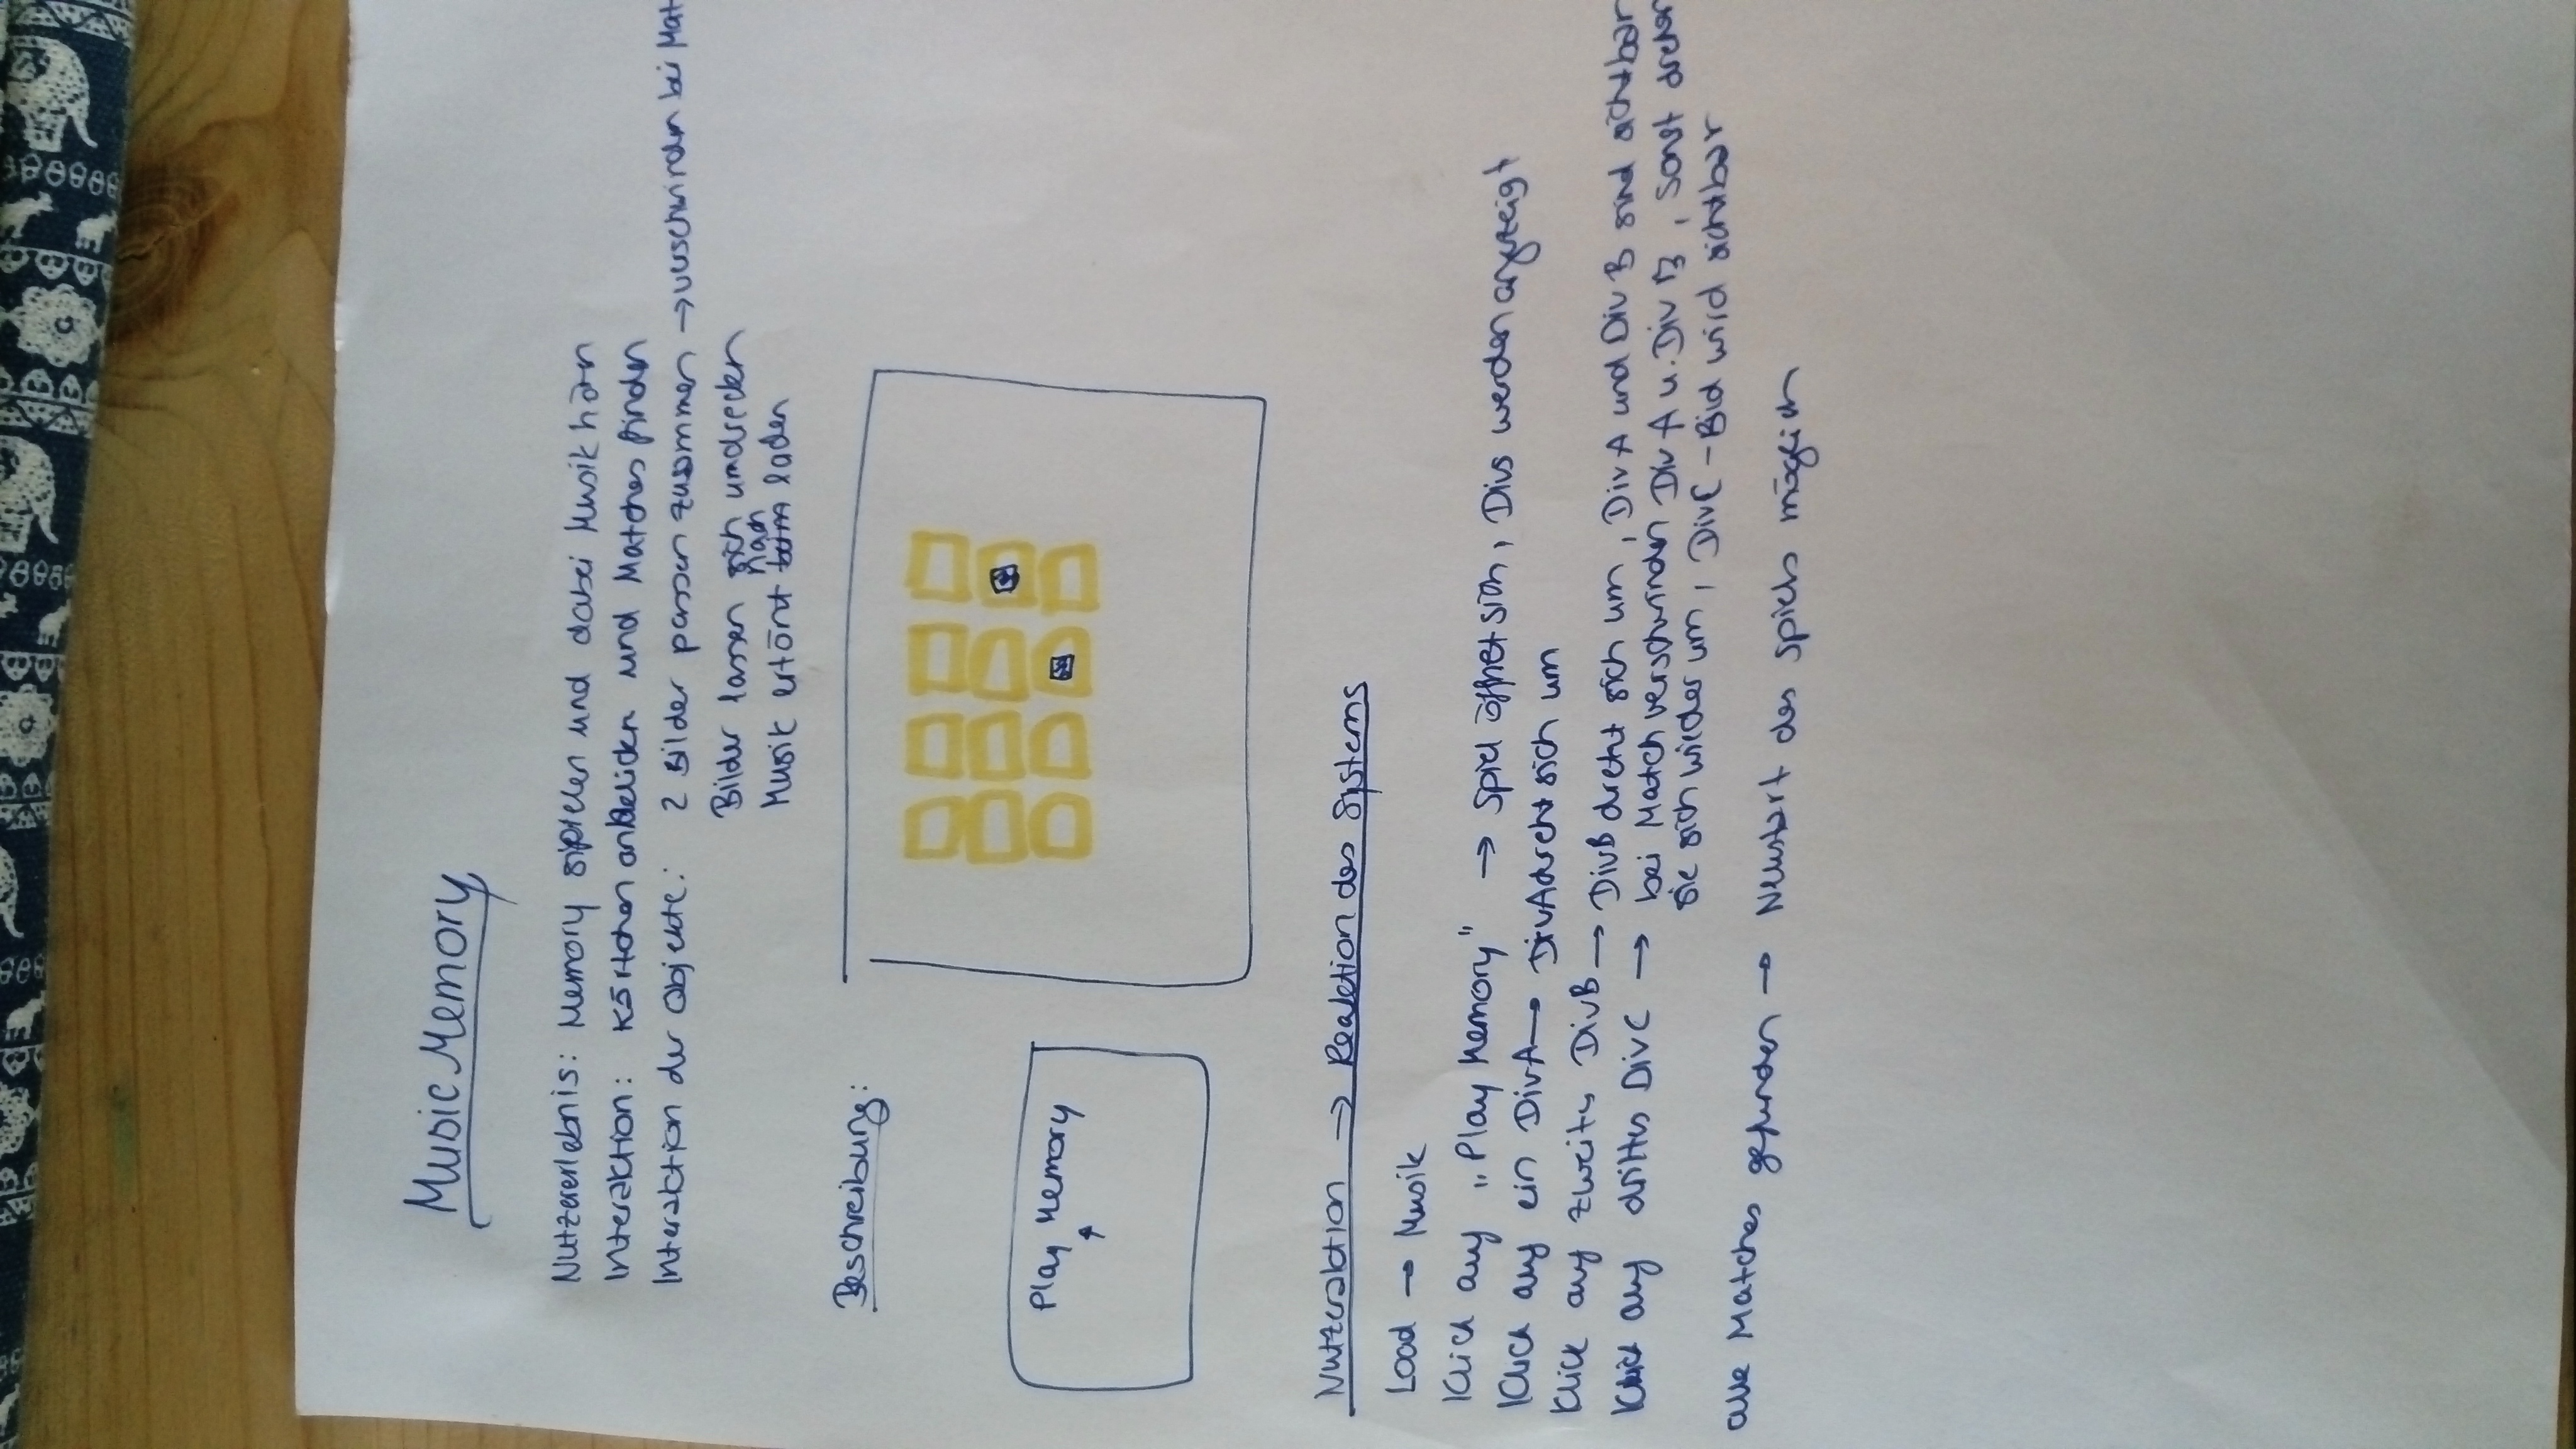 Music Memory
Nutzererlebnis: Memory spielen und dabei Musik hörn
Interaktion: Kärtchen anklicken und Matches finden
Interaktion der Objekte: 2 Bilder passen zusammen → verschwinden bei Mat
Bilder lassen sich umdrehen
nach
Musik ertönt beim laden
Beschreibung:
Play Memory
Nutzeraktion → Reaktion des Systems
Load → Musik
Klick auf „Play Memory" → Spiel öffnet sich, Divs werden angezeigt
Klick auf ein DivA → DivA dreht sich um
Klick auf zweites DivB → DivB dreht sich um, DivA und DivB sind sichtbar
Klick auf drittes DivC → bei Match verschwinden DivA u. DivB, sonst drehen
sie sich wieder um, DivC-Bild wird sichtbar
alle Matches gefunden → Neustart des Spiels möglich